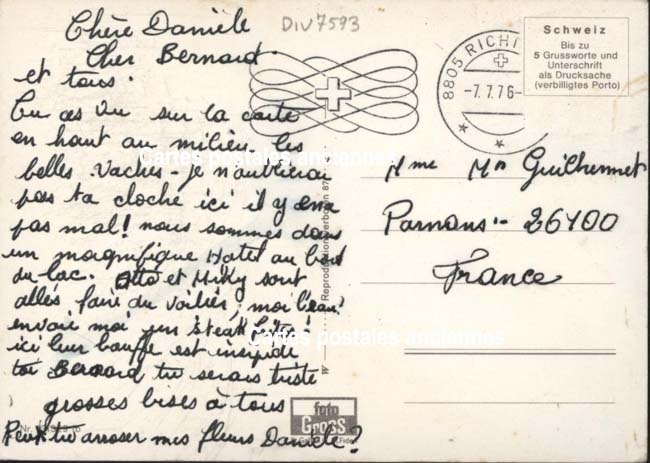 Chère Danièle
Cher Bernard.
et tous.
Tu as vu sur la carte
en haut au milieu. les
belles vaches - je n'oublierai
pas ta cloche ici il y en a
pas mal! nous sommes dans
un magnifique Hotel au bord
du lac. Otto et Miky sont
allés faire du voilier, moi l'eau!
envoie moi un steak frites!
ici leur bouffe est insipide
toi Bernard tu serais triste
grosses bises à tous
Peux tu arroser mes fleurs Danièle?
DIV7593
8805 RICHT
-7.7.76-
Schweiz
Bis zu
5 Grussworte und
Unterschrift
als Drucksache
(verbilligtes Porto)
Mme Mr Guilhermet
Parnans - 26400
France
Reproduktion verboten 87
foto
GROSS
Cartes postales anciennes
Cartes postales anciennes